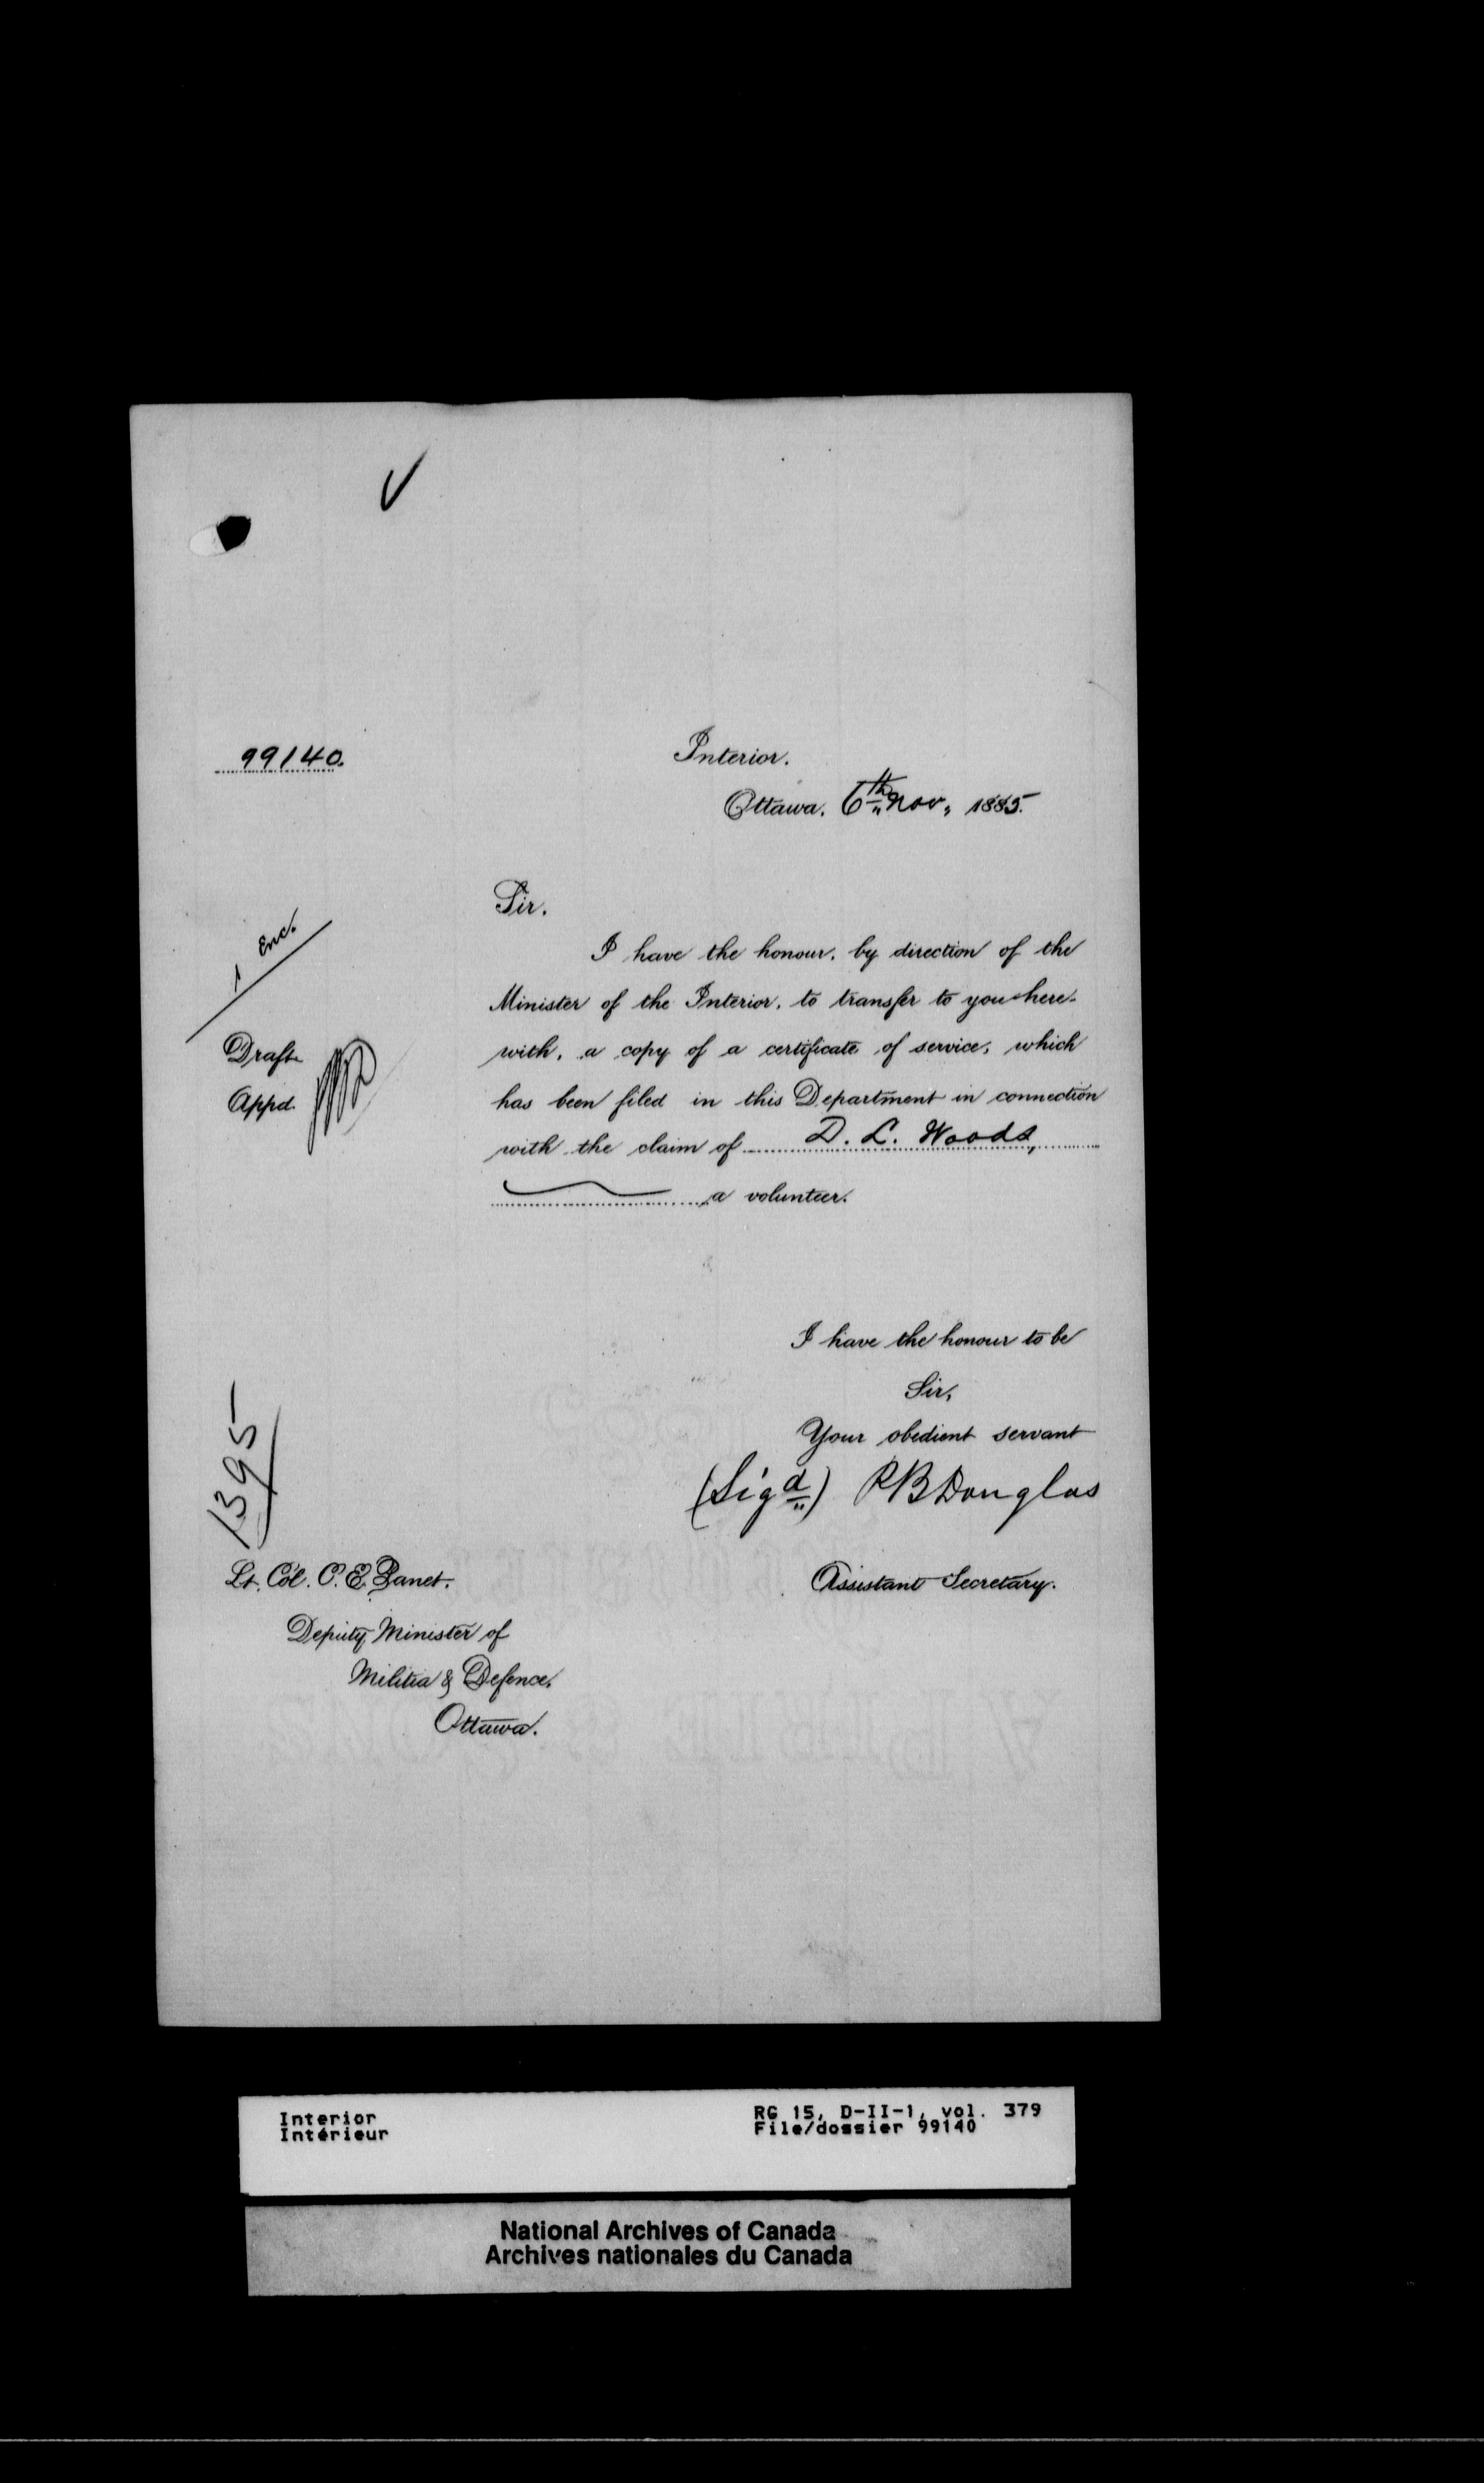 99140.
Interior.
Ottawa. 6th Nov., 1885.
Sir.
1 Enc.
I have the honour, by direction of the
Minister of the Interior, to transfer to you here-
with, a copy of a certificate of service, which
has been filed in this Department in connection
with the claim of D. L. Woods,
a volunteer.
Draft
Appd.
I have the honour to be
Sir,
Your obedient servant
(Sigd) P B Douglas
Assistant Secretary.
1395
Lt. Col. C. E. Panet.
Deputy Minister of
Militia & Defence,
Ottawa.
Interior
Intérieur
RG 15, D-II-1, vol. 379
File/dossier 99140
National Archives of Canada
Archives nationales du Canada